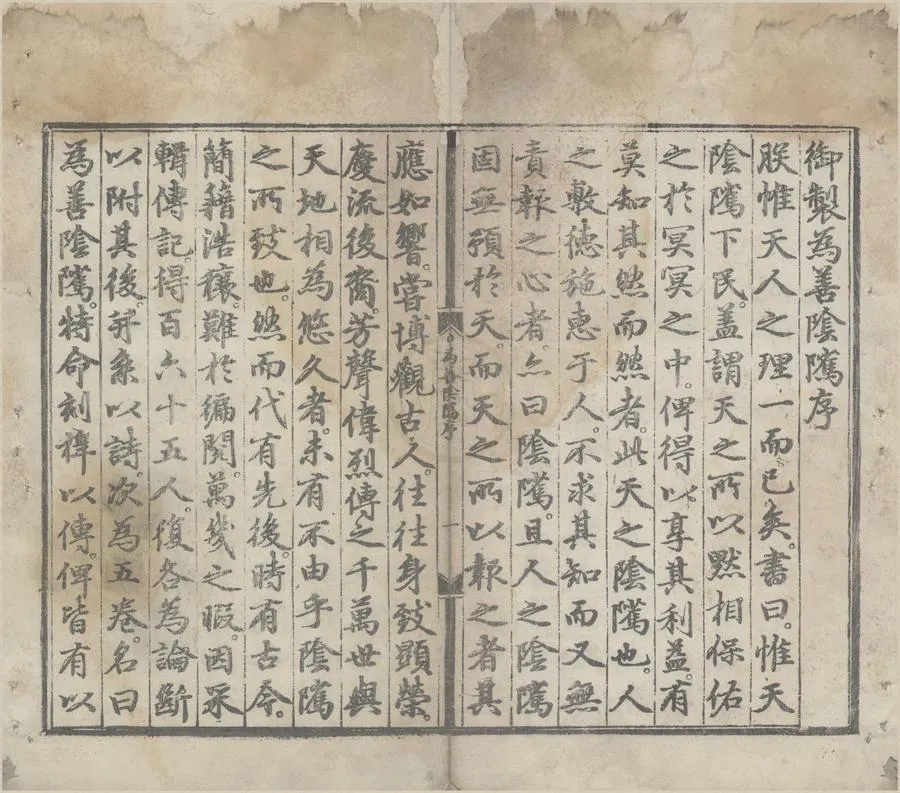 御製為善陰隲序
朕惟天人之理一而已矣。書曰。惟天
陰隲下民。盖謂天之所以黙相保佑
之於冥冥之中。俾得以享其利益。有
莫知其然而然者。此天之陰隲也。人
之敷徳施惠于人。不求其知而又無
責報之心者。亦曰陰隲。且人之陰隲
固無預於天。而天之所以報之者其
為善陰隲序
一
應如響。嘗博觀古人。往往身致顯榮。
慶流後裔。芳聲偉烈傳之千萬世與
天地相為悠久者。未有不由乎陰隲
之所致也。然而代有先後。時有古今。
簡籍浩穰。難於徧閱。萬幾之暇。因采
輯傳記。得百六十五人。復各為論斷
以附其後。并系以詩。次為五卷。名曰
為善陰隲。特命刻梓以傳。俾皆有以